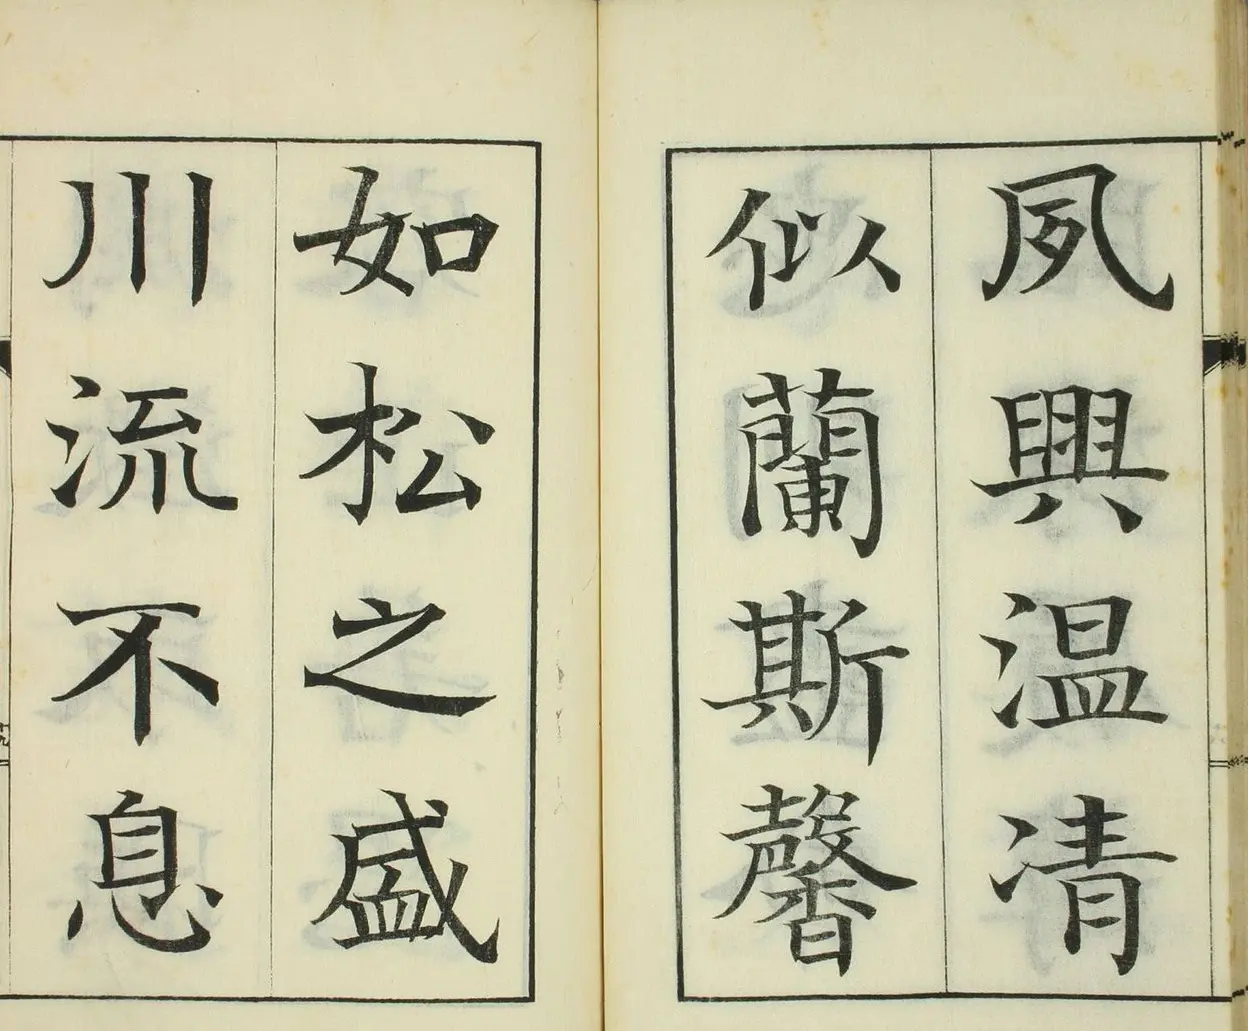 夙興温凊
似蘭斯馨
如松之盛
川流不息